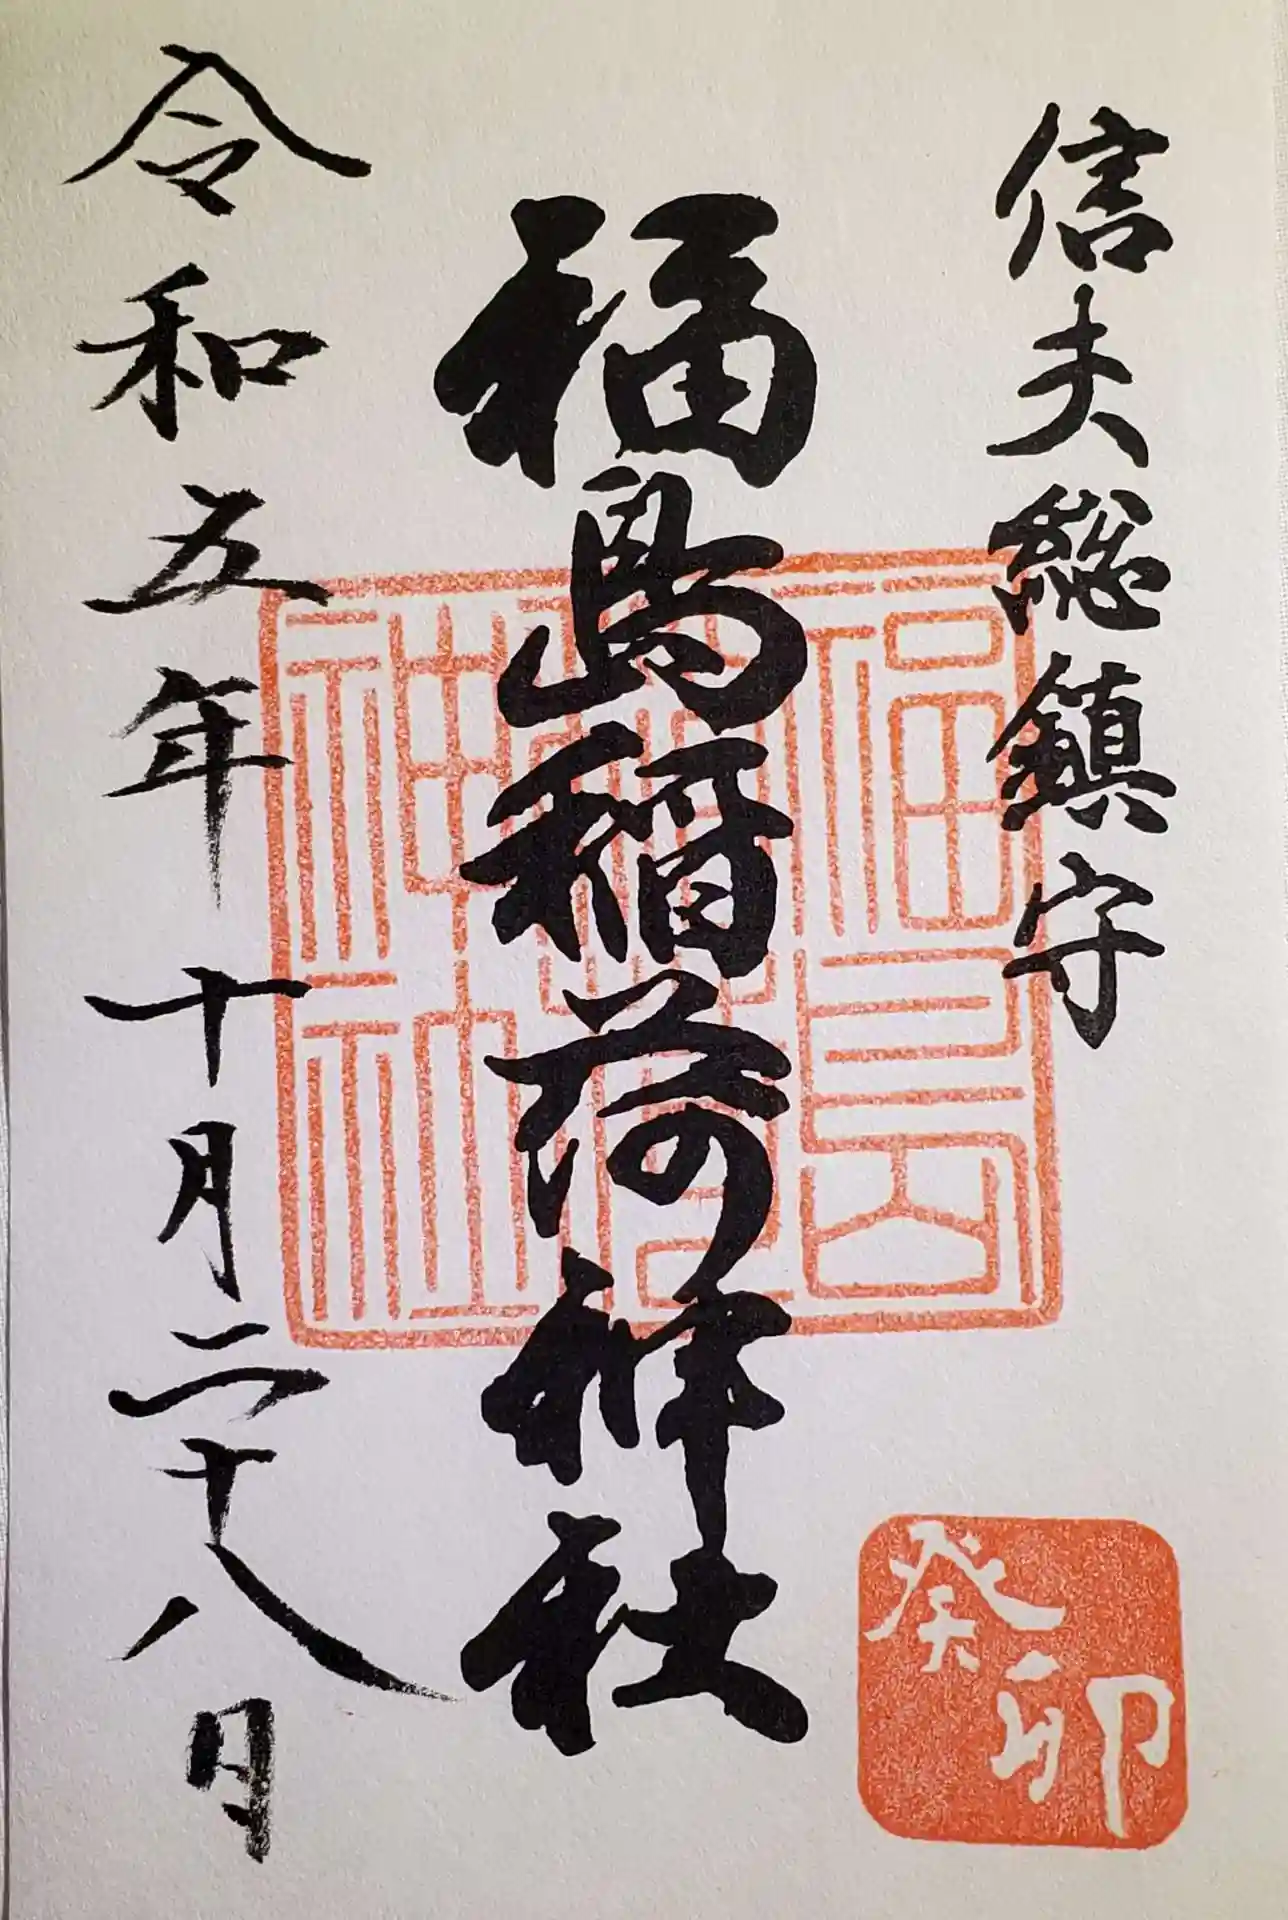 信夫総鎮守
福島稲荷神社
令和五年十月二十八日
福島稲荷神社
癸卯